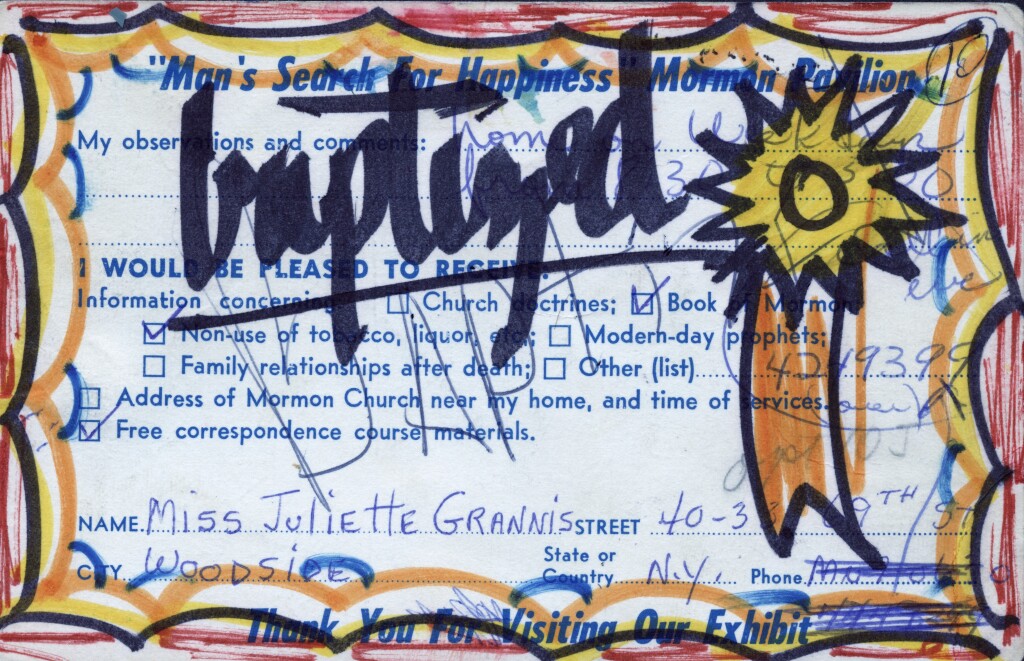 "Man's Search For Happiness" Mormon Pavilion 10
My observations and comments: home on week days
baptized
I WOULD BE PLEASED TO RECEIVE:
Information concerning Church doctrines; Book of Mormon;
Non-use of tobacco, liquor, etc.; Modern-day prophets;
Family relationships after death; Other (list) 4249399
Address of Mormon Church near my home, and time of services. (over)
Free correspondence course materials.
NAME Miss Juliette Grannis STREET 40-33 69TH St
CITY Woodside State or Country N.Y. Phone
Thank You For Visiting Our Exhibit